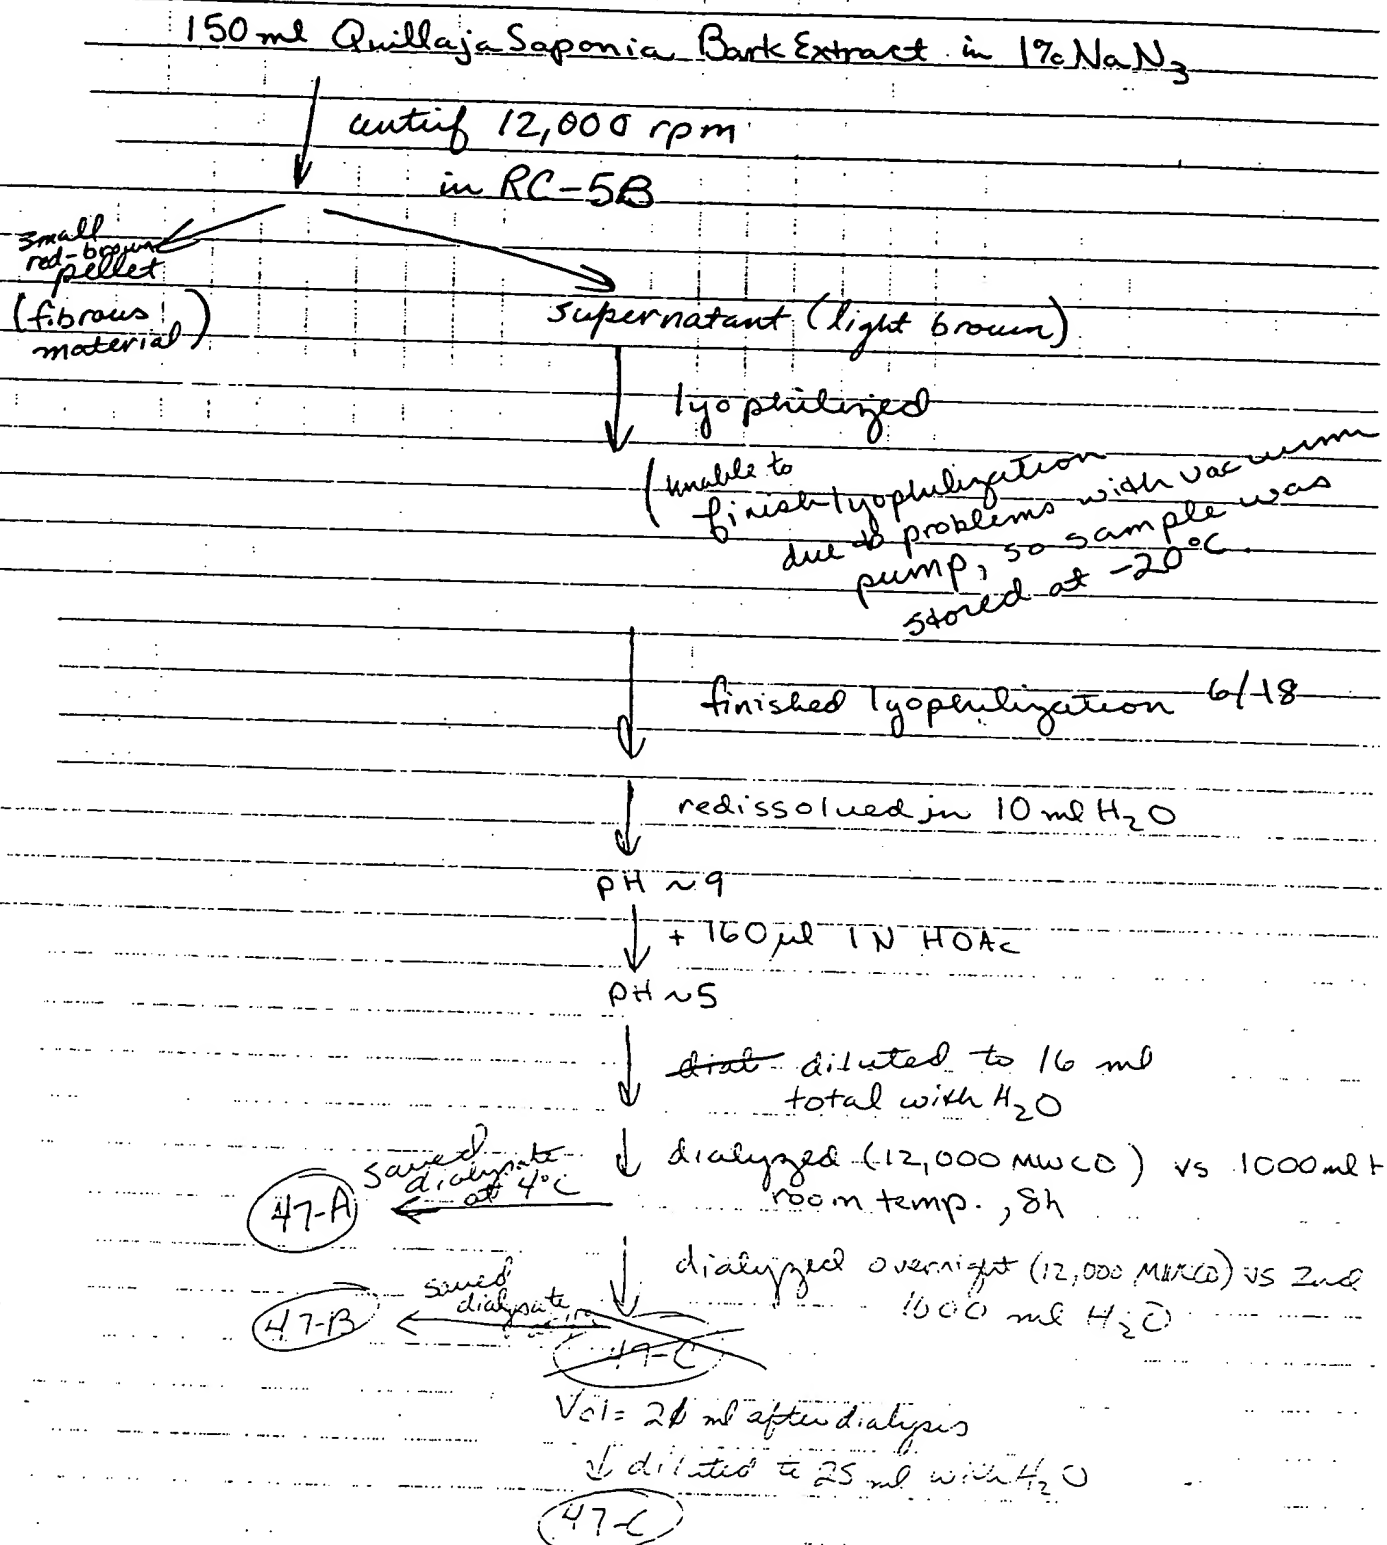 150 ml Quillaja Saponia Bark Extract in 1% NaN3
centrif 12,000 rpm
in RC-5B
small
red-brown
pellet
(fibrous
material)
supernatant (light brown)
lyophilized
(unable to
finish lyophilization
due to problems with vacuum
pump, so sample was
stored at -20°C.
finished lyophilization 6/18
redissolved in 10 ml H2O
pH ~9
+ 160 µl 1N HOAc
pH ~5
dial diluted to 16 ml
total with H2O
dialyzed (12,000 MWCO) vs 1000 ml H
room temp., 8h
saved
dialysate
at 4°C
47-A
dialyzed overnight (12,000 MWCO) vs 2nd
1000 ml H2O
saved
dialysate
47-B
47-C
Vol = ml after dialysis
↓ diluted to 25 ml with H2O
47-C